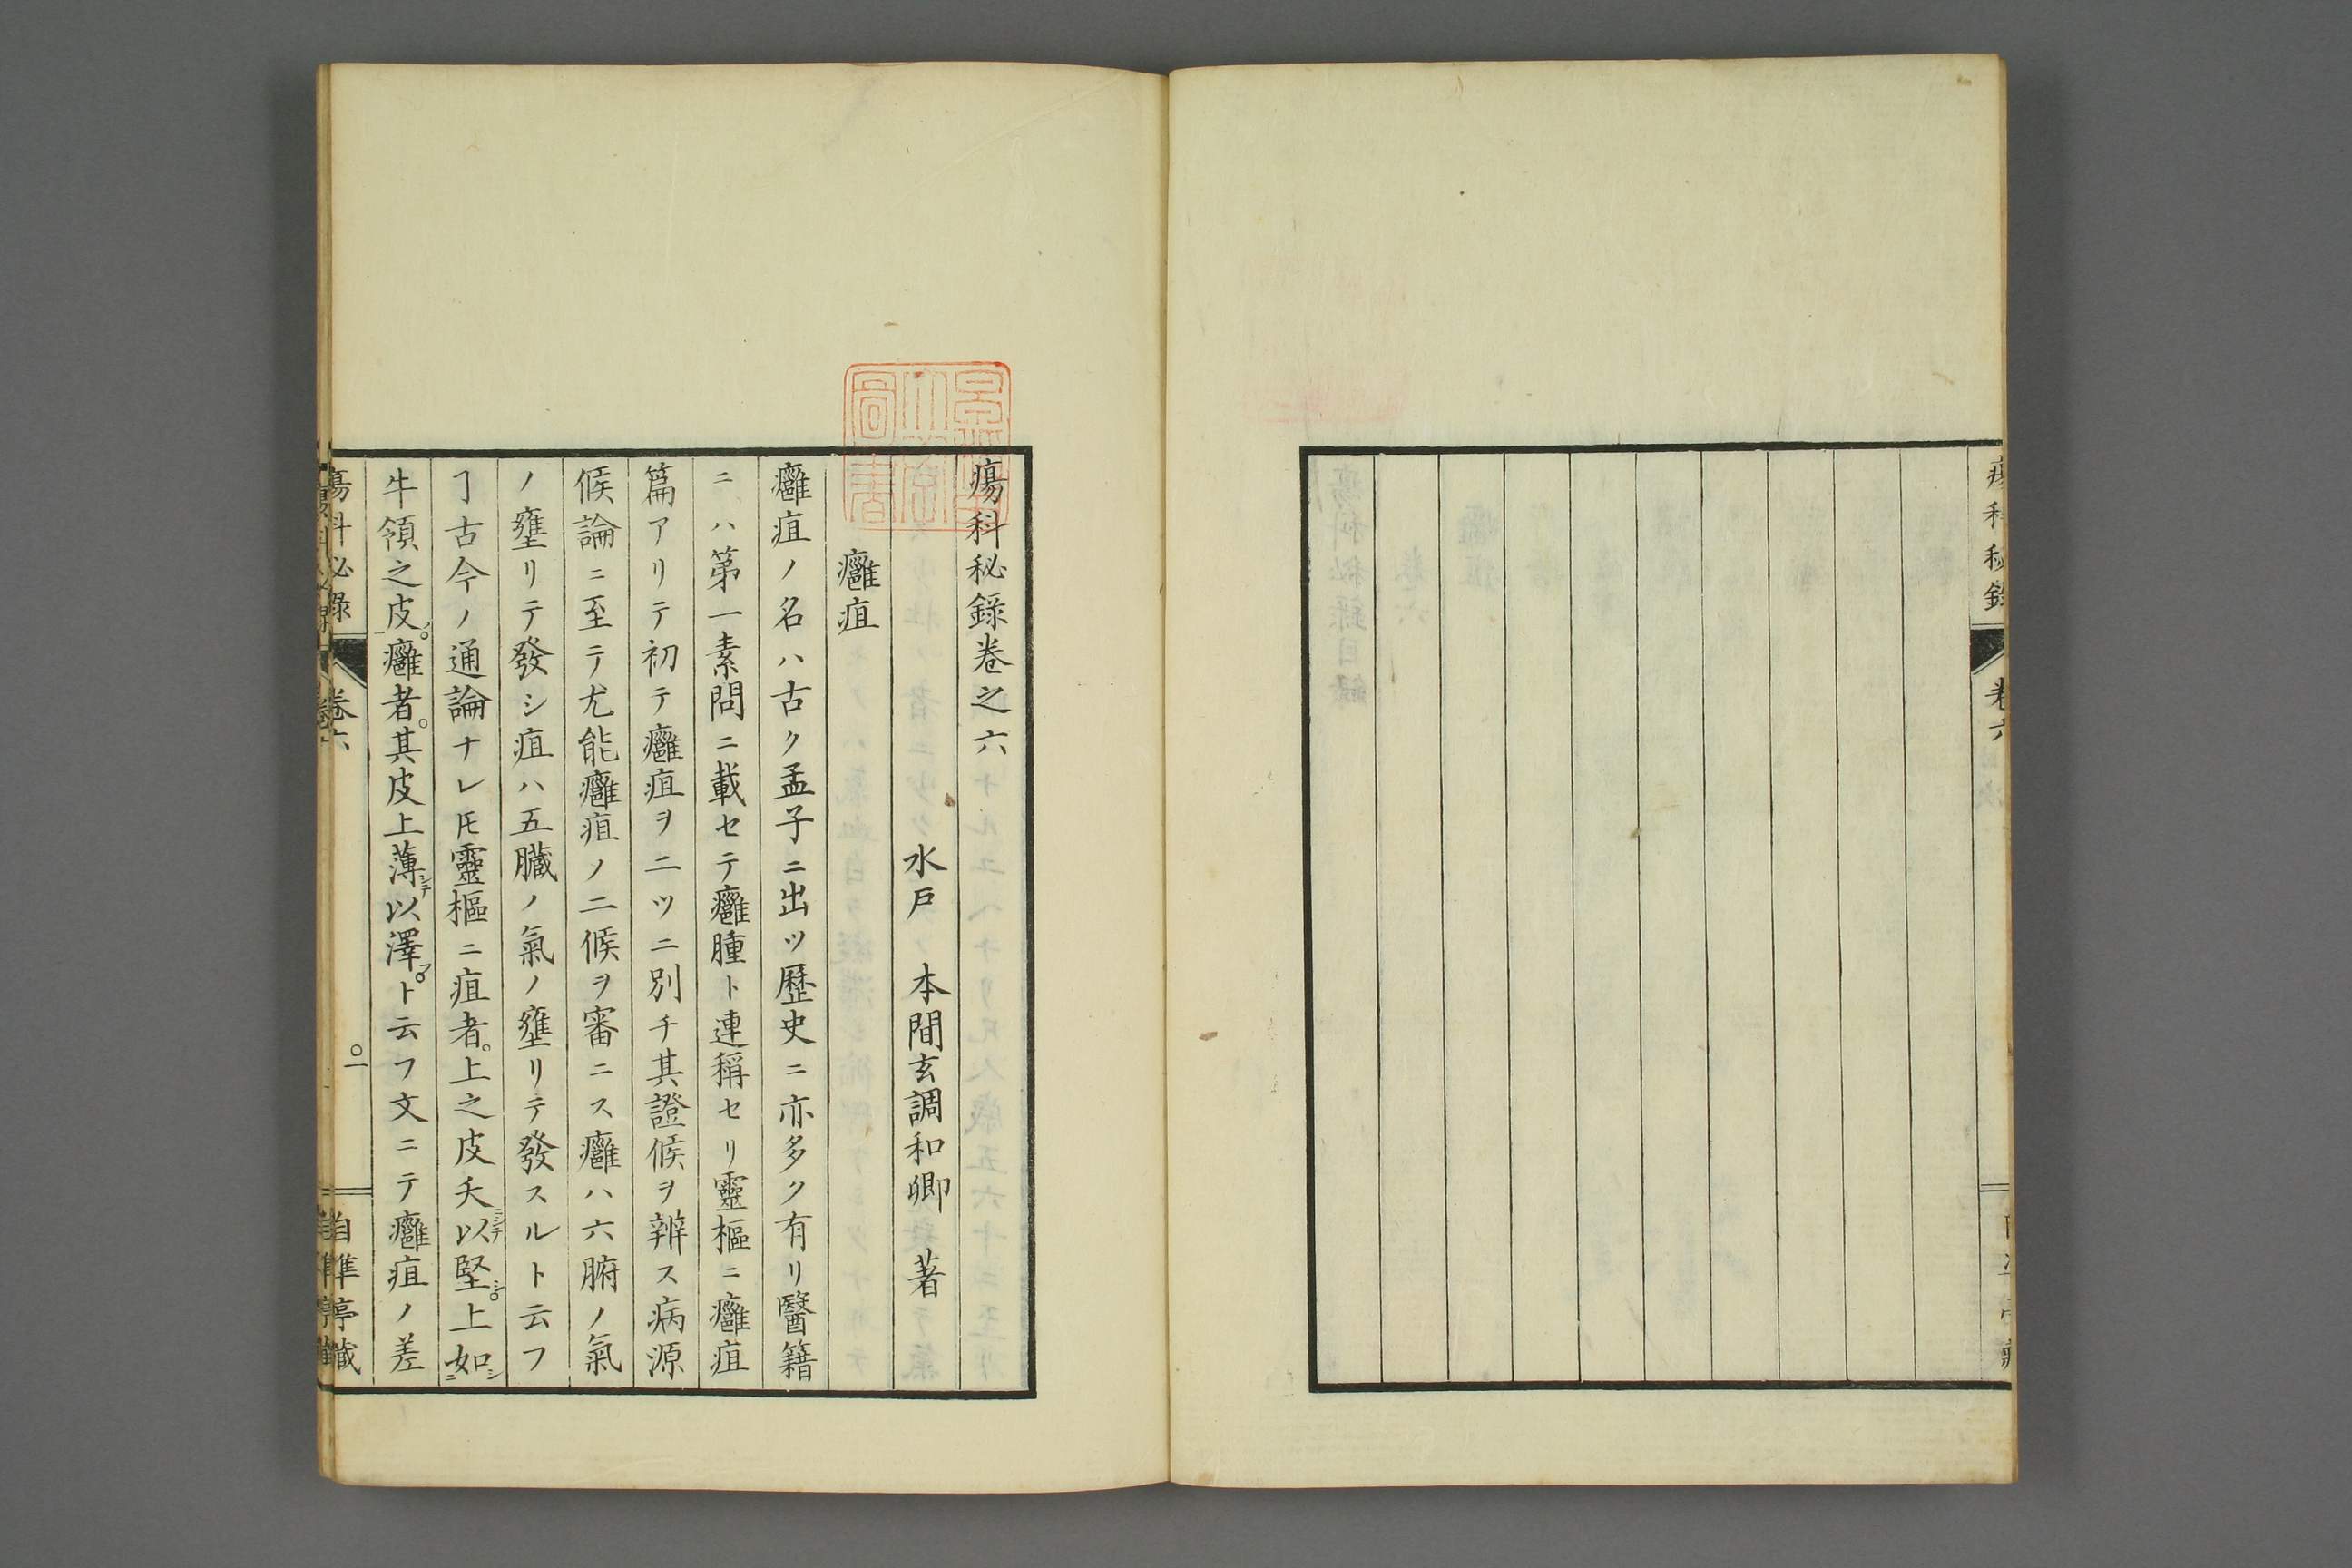 瘍科秘錄
卷六
瘍科秘錄卷之六
水戸 本間玄調和卿 著
癰疽
癰疽ノ名ハ古ク孟子ニ出ツ歷史ニ亦多ク有リ醫籍
ニハ第一素問ニ載セテ癰腫ト連稱セリ靈樞ニ癰疽
篇アリテ初テ癰疽ヲ二ツニ別チ其證候ヲ辨ス病源
候論ニ至テ尤能癰疽ノ二候ヲ審ニス癰ハ六腑ノ氣
ノ壅リテ發シ疽ハ五臟ノ氣ノ壅リテ發スルト云フ
ヿ古今ノ通論ナレ𪜈靈樞ニ疽者。上之皮夭以堅。上如
牛領之皮。癰者。其皮上薄以澤。ト云フ文ニテ癰疽ノ差
瘍科秘錄
卷六
一
自準亭藏